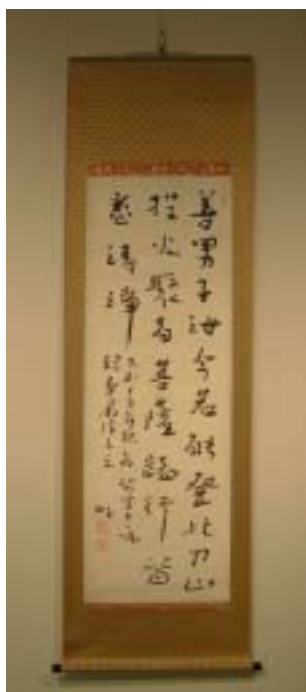 善男子汝今若能登此刀山
投火聚者菩薩諸行皆
悉清淨